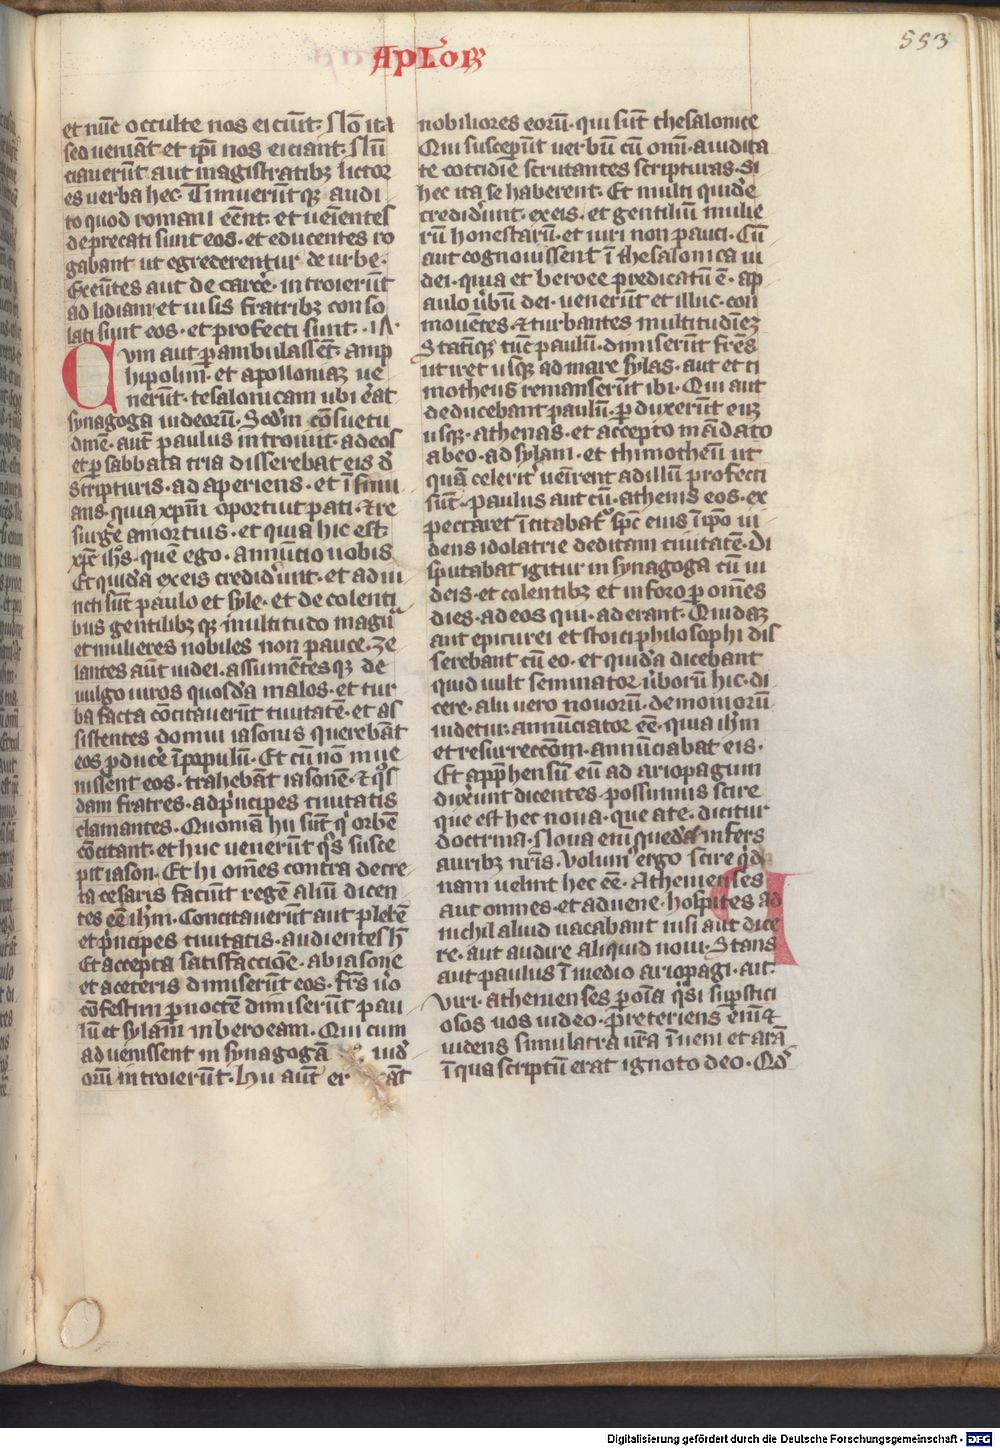 553
Aptoꝝ
et nūc occulte nos eiciūt· Nō ita
sed veniāt et ipī nos eiciant· Nū
ciauerūt aut magistratibꝫ lictor
es verba hec· Timuerūt qꝫ audi
to quod romani eēnt· et ueīentes
deprecati sunt eos· et educentes ro
gabant ut egrederentur de urbe·
Exeūtes aut de carcēe· introierūt
ad lidiam et uisis fratribꝫ conso
lati sunt eos· et profecti sunt·
Cvm aut ꝑambulassēt amp
hipolim· et apolloniaꝫ ue
nerūt· tesalonicam ubi ēat
synagoga iudeorū· Scdm cōsuetu
dinē· aut paulus introiuit· ad eos
et ꝑ sabbata tria disserebat eis d
scripturis· ad aperiens· et īsinu
ans· quia xpm oportuit pati· et re
surgēe a mortuis· et quia hic est
xpc ihs· quē ego· annūcio uobis
Et quidā ex eis credidūnt· et adiu
ncti sūt paulo et syle· et de colenti
bus gentilibꝫ qꝫ multitudo magn
et mulieres nobiles non pauce· ze
lantes aūt iudei· assumētes qꝫ de
uulgo uiros quosdā malos· et tur
ba facta cōcitauerūt ciuitatē· et as
sistentes domui iasonis querebāt
eos ꝓducē ī populū· Et cū nō īue
nissent eos· trahebāt iasonē· et qs
dam fratres· ad pncipes ciuitatis
clamantes· Quoniā hii sūt q orbē
cōcitant· et huc uenerūt qs susce
pit iason· Et hi omēs contra decre
ta cesaris faciūt regē aliū dicen
tes eē ihm· Concitauerūt aut plebē
et pncipes ciuitatis· audientes h
Et accepta satisfactiōe· ab iasone
et a ceteris dimiserūt eos· Frs uo
cōfestim ꝑ noctē dimiserūt pau
lū et sylam in beroeam· Qui cum
aduenissent in synagogā iud
orū introierūt· Hii aūt er āt
nobiliores eorū· qui sūt thesalonice
Qui susceperūt uerbū cū omī auidita
te cottidie scrutantes scripturas· Si
hec ita se haberent· Et multi quidē
crediderūt· ex eis· et gentiliū mulie
rū honestarū· et uiri non pauci· Cū
aut cognouissent ī thesalonica iu
dei· quia et beroee predicatū ē· ap
aulo ubū dei· uenerūt et illuc· con
mouētes et turbantes multitudīeꝫ
Statīqꝫ tūc paulū· dimiserūt frēs
ut iret usqꝫ ad mare sylas· aut et ti
motheus remanserūt ibi· Qui aut
deducebant paulū· ꝑduxerūt eūꝫ
usqꝫ· athenas· et accepto mādato
ab eo· ad sylam· et thimotheū ut
quā celerit ueīrent ad illū profecti
sūt· Paulus aut cū athenis eos· ex
pectaret īcitabat spc eius ī ipo ui
dens idolatrie deditam ciuitatē· Di
sputabat igitur in synagoga cū iu
deis· et colentibꝫ et in foro ꝑ omēs
dies· ad eos qui· aderant· Quidaꝫ
aut epicurei et stoici philosophi dis
serebant cū eo· et quidā dicebant
quid uult seminator uborū hic· di
cere· alii uero nouorū· demoniorū
uidetur· annūciator eē· quia ihm
et resurreccōm· annūciabat eis·
Et apphensū eū ad ariopagum
duxūnt dicentes· possumus scire
que est hec noua· que a te· dicitur
doctrina· Noua eni quedā infers
auribꝫ nrīs· Volum ergo scire qd
nam uelint hec eē· Athenienses
aut omnes· et aduene· hospites ad
nichil aliud uacabant nisi aut dice
re· aut audire aliquid noui· Stans
aut paulus ī medio ariopagi· ait·
Viri· athenienses ꝑ oīa qsi supstici
osos uos uideo· preteriens enī et
uidens simulatra ura īueni et arā
ī qua scriptū erat ignoto deo· Qd
Digitalisierung gefördert durch die Deutsche Forschungsgemeinschaft - DFG